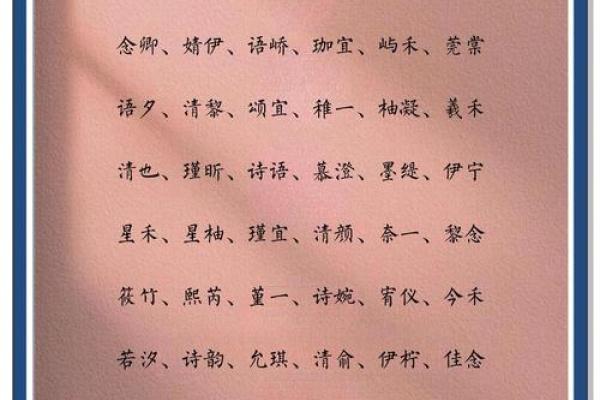 念卿、婧伊、语峤、珈宜、屿禾、莞棠
语夕、清黎、颂宜、稚一、柚凝、羲禾
清也、瑾昕、诗语、慕澄、墨缇、伊宁
星禾、星柚、瑾宜、清颜、奈一、黎念
筱竹、熙芮、堇一、诗婉、宥仪、今禾
若汐、诗韵、允琪、清俞、伊柠、佳念